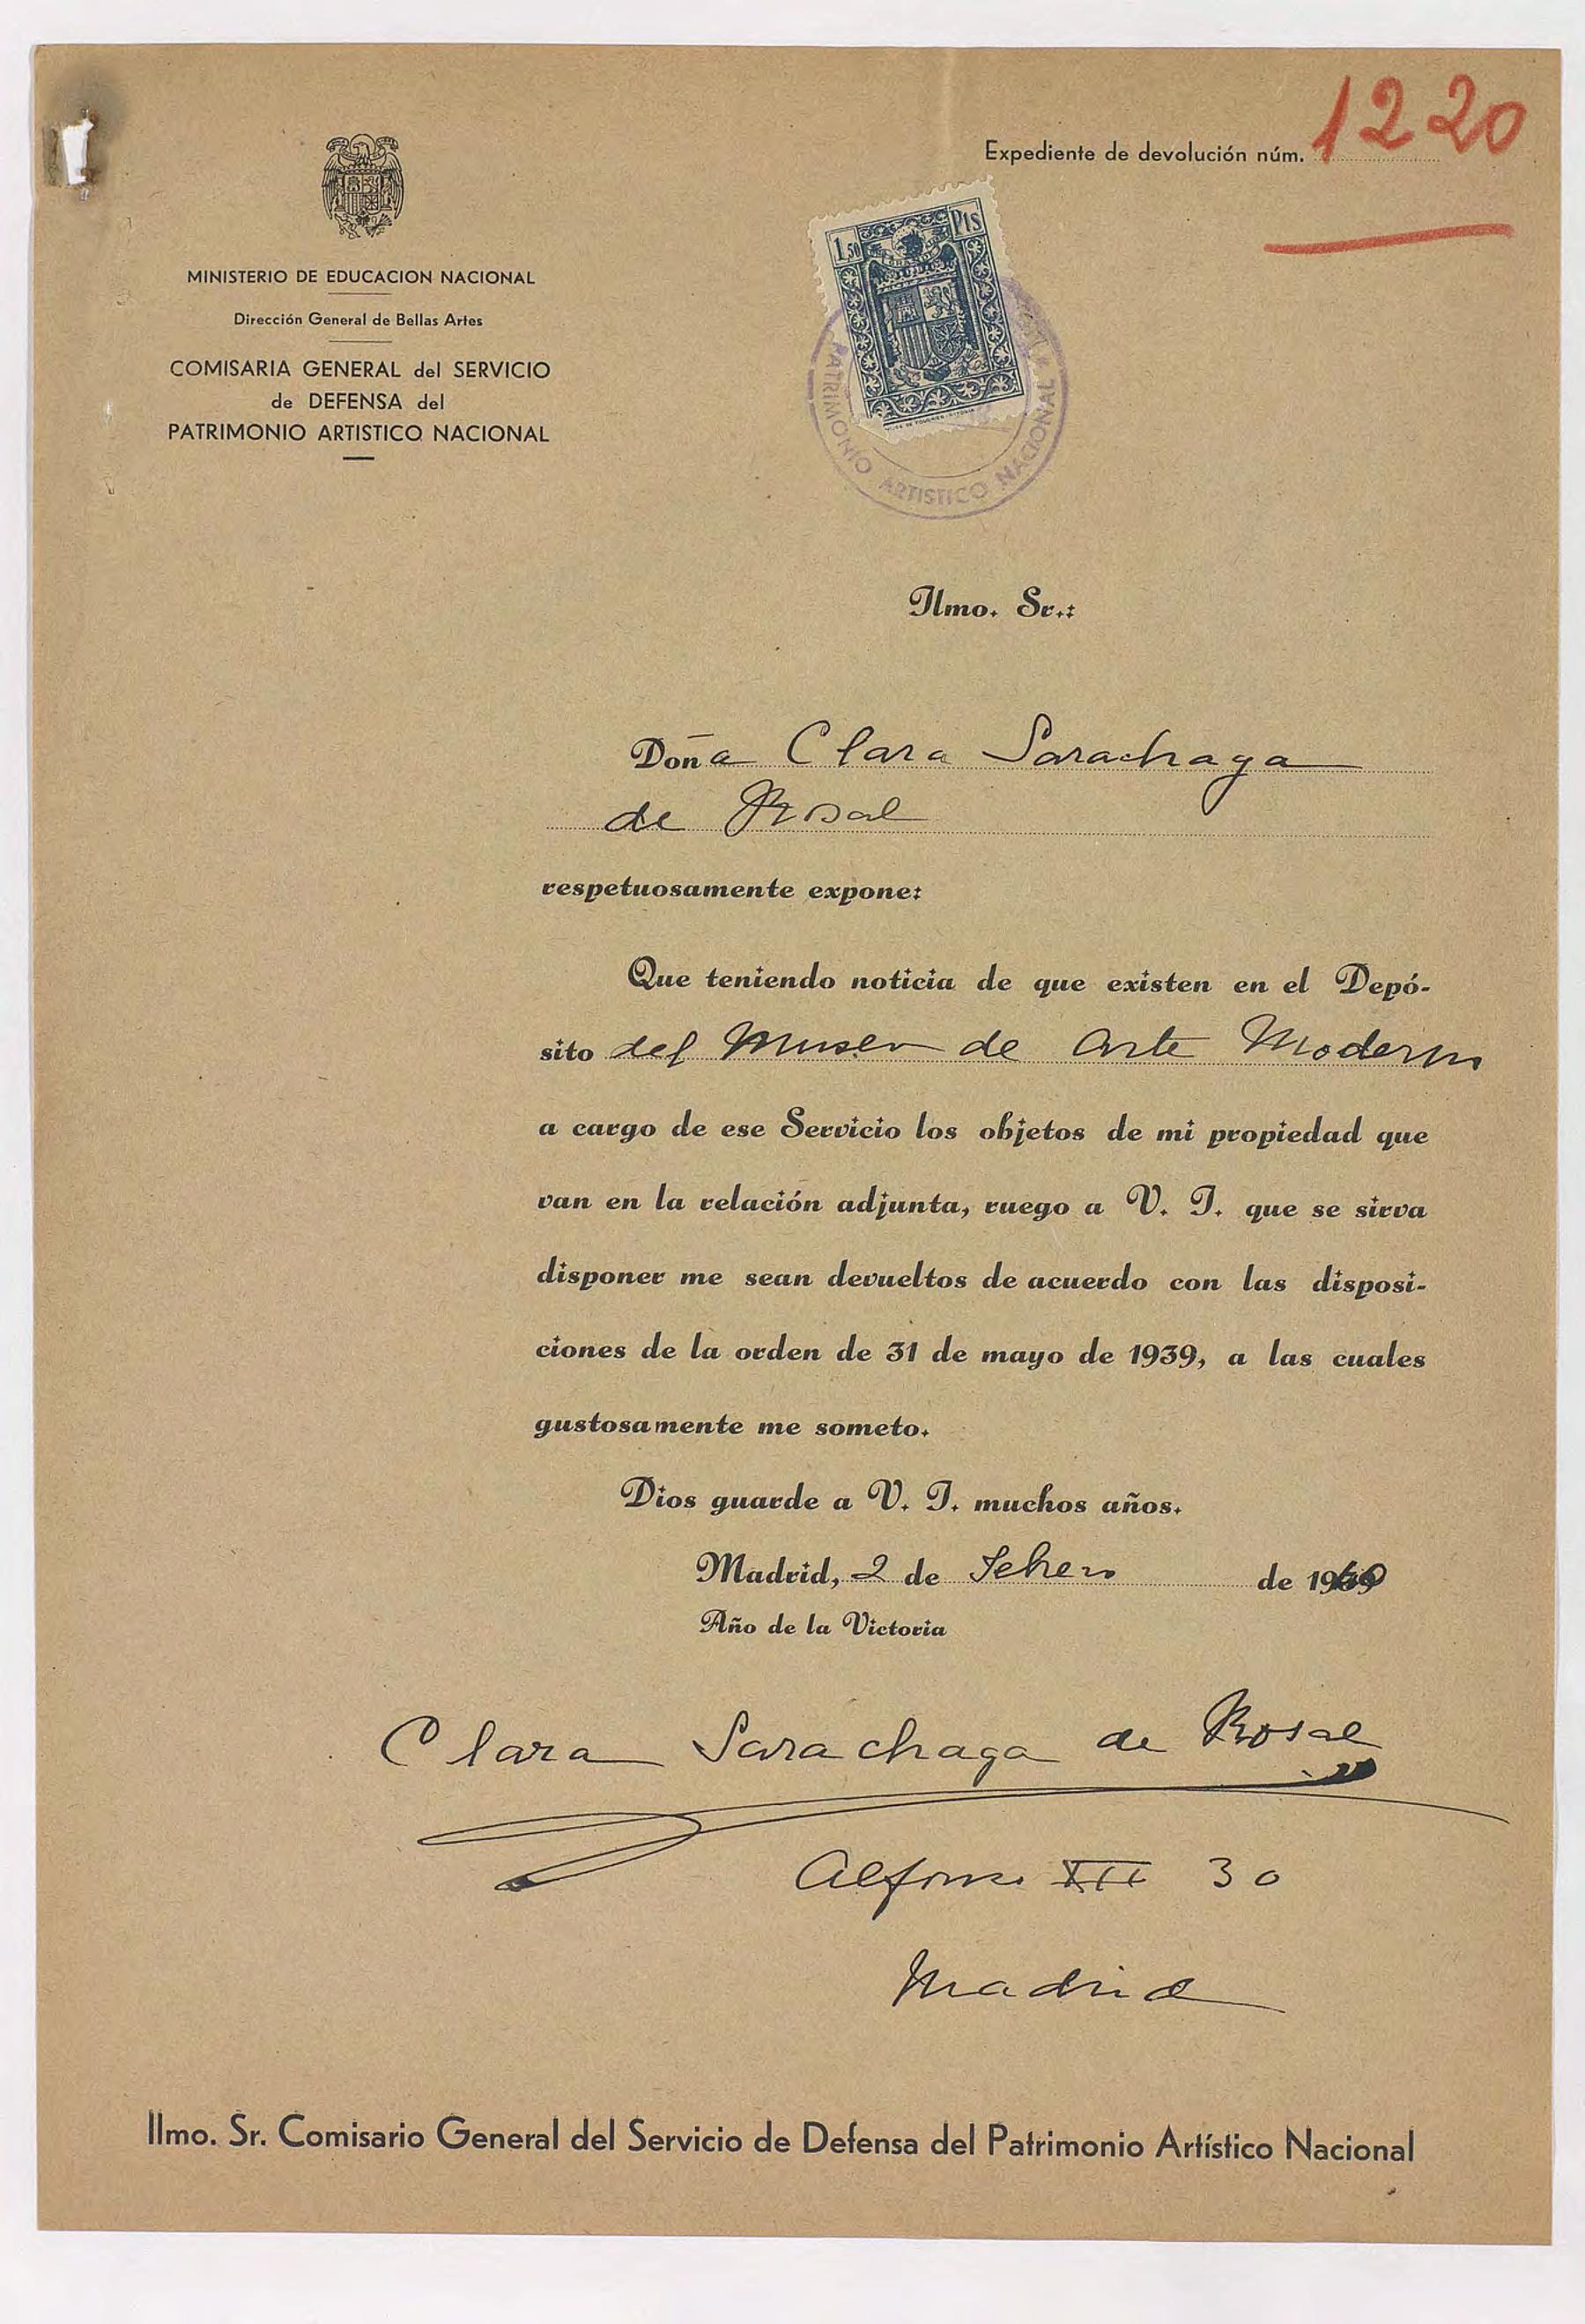 Expediente de devolución núm. 1220
MINISTERIO DE EDUCACION NACIONAL
Dirección General de Bellas Artes
COMISARIA GENERAL del SERVICIO
de DEFENSA del
PATRIMONIO ARTISTICO NACIONAL
1,50 Pts
PATRIMONIO ARTISTICO NACIONAL
Ilmo. Sr.:
Doña Clara Sarachaga
de Rosal
respetuosamente expone:
Que teniendo noticia de que existen en el Depó-
sito del Museo de Arte Moderno
a cargo de ese Servicio los objetos de mi propiedad que
van en la relación adjunta, ruego a V. I. que se sirva
disponer me sean devueltos de acuerdo con las disposi-
ciones de la orden de 31 de mayo de 1939, a las cuales
gustosamente me someto.
Dios guarde a V. I. muchos años.
Madrid, 2 de Febrero de 1940
Año de la Victoria
Clara Sarachaga de Rosal
Alfonso XII 30
Madrid
Ilmo. Sr. Comisario General del Servicio de Defensa del Patrimonio Artístico Nacional